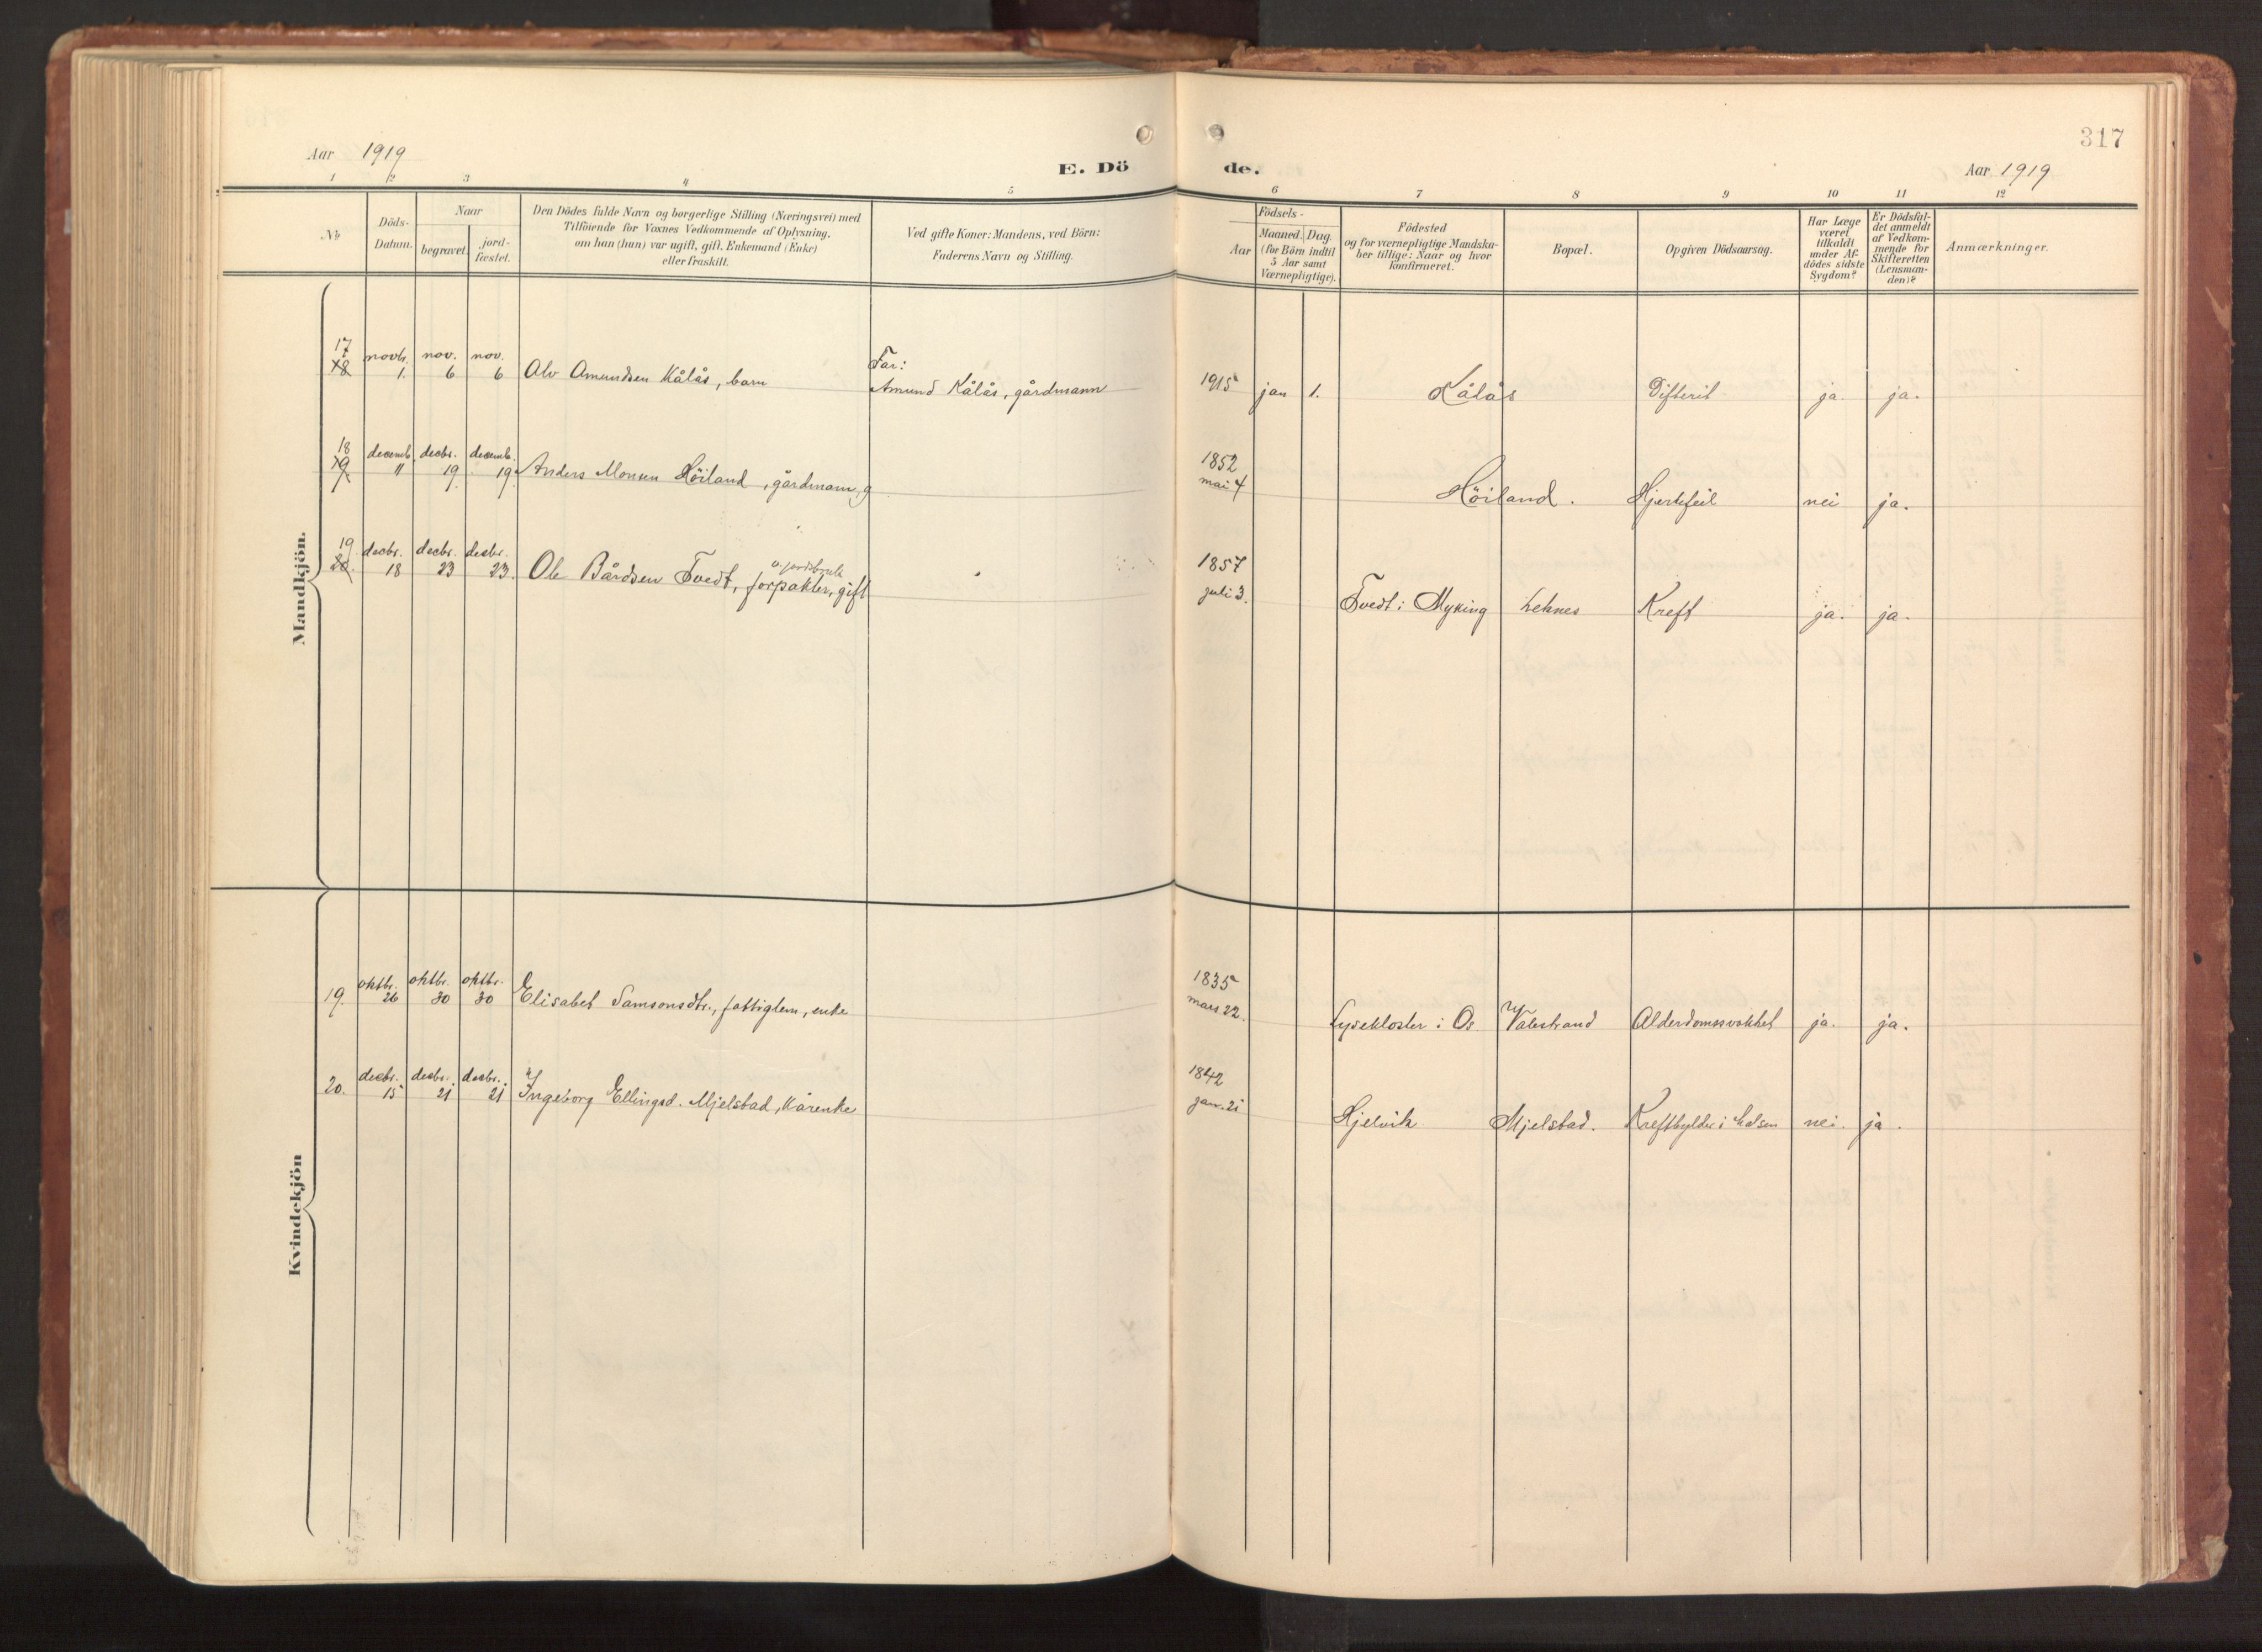 317
Aar 1919
E. Dö
de.
Aar 1919
1 2 3 4 5 6 7 8 9 10 11 12
No
Döds-
Datum.
Naar
begravet.
jord-
fæstet.
Den Dödes fulde Navn og borgerlige Stilling (Næringsvei) med
Tilföiende for Voxnes Vedkommende af Oplysning,
om han (hun) var ugift, gift, Enkemand (Enke)
eller fraskilt.
Ved gifte Koner: Mandens, ved Börn:
Faderens Navn og Stilling.
Födsels-
Aar
Maaned. Dag.
(for Börn indtil
5 Aar samt
Værnepligtige).
Födested
og for værnepligtige Mandska-
ber tillige: Naar og hvor
konfirmeret.
Bopæl.
Opgiven Dödsaarsag.
Har Læge
været
tilkaldt
under Af-
dödes sidste
Sygdom?
Er Dödsfal-
det anmeldt
af Vedkom-
mende for
Skifteretten
(Lensman-
den)?
Anmærkninger.
Mandkjön.
17 novbr. nov. nov. Far:
18 1. 6 6 Alv Amundsen Kålås, barn Amund Kålås, gårdmann 1915 jan 1. Kålås Difterit ja ja.
18 decemb. decbr. decemb. 1852
19 11 19. 19. Anders Monsen Höiland, gårdmann, g mai 4 Höiland. Hjertefeil nei ja.
19 decbr. decbr. decbr. o. jordbruk 1857
20 18 23 23. Ole Bårdsen Tvedt, forpakter, gift juli 3. Tvedt i Myking Leknes Kreft ja. ja.
Kvindekjön
oktbr. oktbr. oktbr. 1835
19. 26 30 30 Elisabet Samsonsdtr., fattiglem, enke mars 22. Lysekloster i Os Valestrand Alderdomssvakhet ja. ja.
decbr. decbr. decbr. 1842
20. 15 21 21 Ingeborg Ellingsd. Mjelstad, kårenke jan. 21 Hjelvik Mjelstad. Kreftbylder i halsen nei. ja.